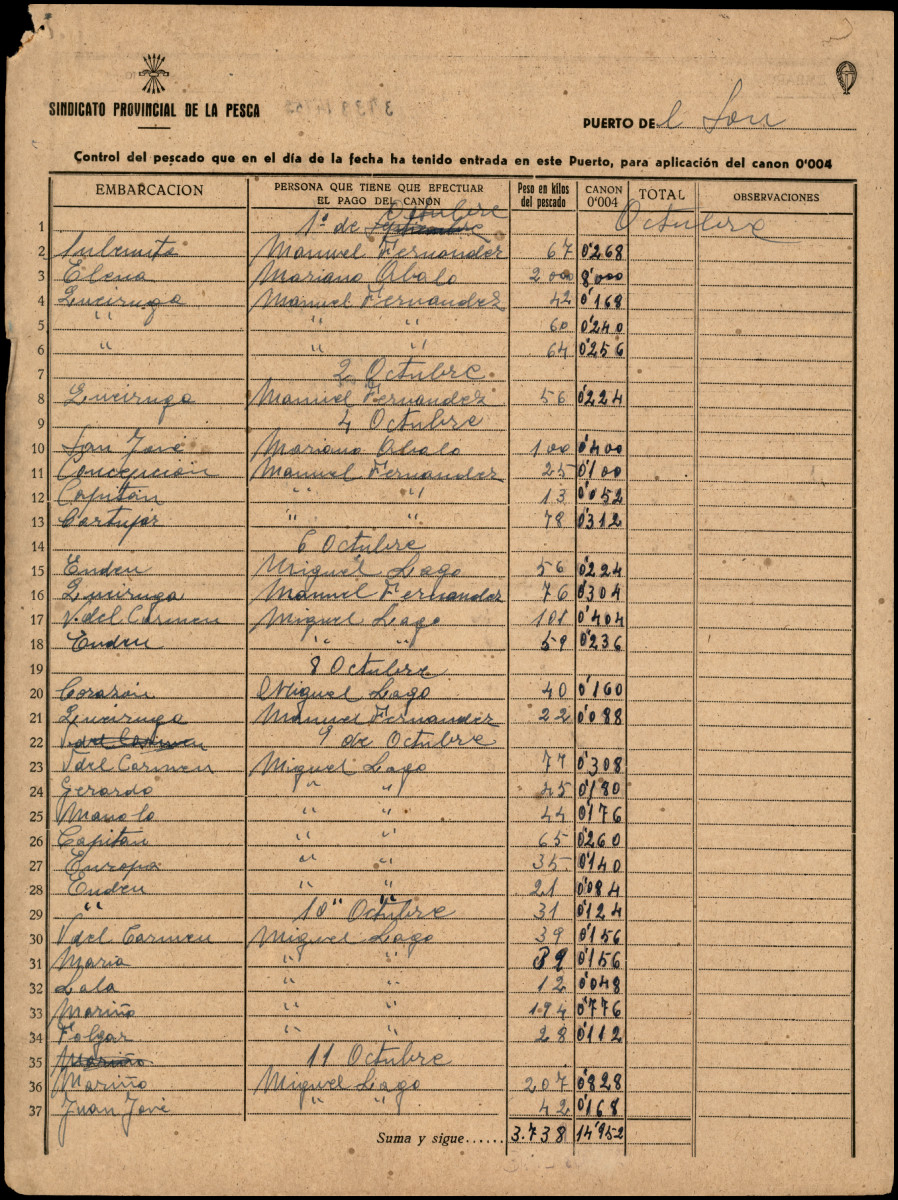 SINDICATO PROVINCIAL DE LA PESCA
PUERTO DE el Son
Control del pescado que en el día de la fecha ha tenido entrada en este Puerto, para aplicación del canon 0'004
EMBARCACION PERSONA QUE TIENE QUE EFECTUAR EL PAGO DEL CANON Peso en kilos del pescado CANON 0'004 TOTAL OBSERVACIONES
1 1º de Septiembre Octubre Octubre
2 Manuel Fernandez 67 0'268
3 Elena Mariano Abalo 2000 8'000
4 Queiruga Manuel Fernandez 42 0'168
5 " " " 60 0'240
6 " " " 64 0'256
7 2 Octubre
8 Queiruga Manuel Fernandez 56 0'224
9 4 Octubre
10 San José Mariano Abalo 100 0'400
11 Concepción Manuel Fernandez 25 0'100
12 Capitán " " 13 0'052
13 " " 78 0'312
14 6 Octubre
15 Enden Miguel Lago 56 0'224
16 Queiruga Manuel Fernandez 76 0'304
17 V. del Carmen Miguel Lago 101 0'404
18 Enden " " 59 0'236
19 8 Octubre
20 Corazón Miguel Lago 40 0'160
21 Queiruga Manuel Fernandez 22 0'088
22 V del Carmen 9 de Octubre
23 V del Carmen Miguel Lago 77 0'308
24 Gerardo " " 45 0'180
25 Manolo " " 44 0'176
26 Capitán " " 65 0'260
27 Europa " " 35 0'140
28 Enden " " 21 0'084
29 " 10 Octubre 31 0'124
30 V del Carmen Miguel Lago 39 0'156
31 Maria " " 39 0'156
32 Lala " " 12 0'048
33 Mariño " " 194 0'776
34 Folgar " " 28 0'112
35 Mariño 11 Octubre
36 Mariño Miguel Lago 207 0'828
37 Juan José " " 42 0'168
Suma y sigue...... 3.738 14'952